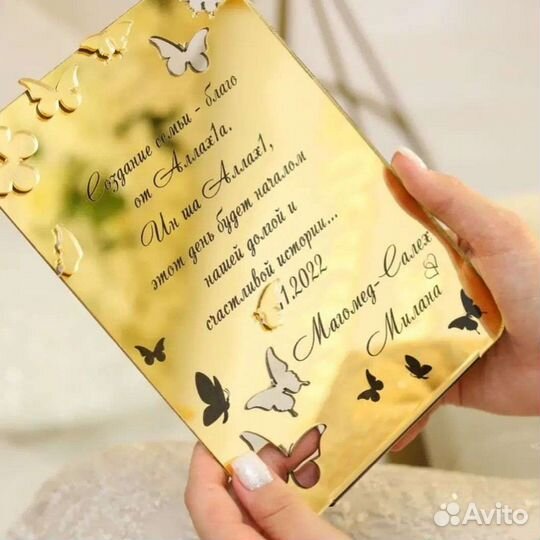 Создание семьи - благо
от Аллах1а.
Ин ша Аллах1,
этот день будет началом
нашей долгой и
счастливой истории...
.1.2022
Магомед-Салех
Милана
Avito